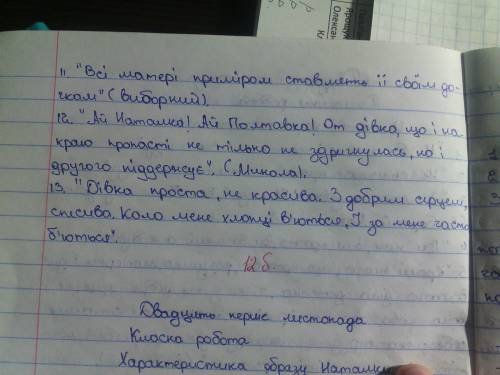 11. "Всі матері приміром ставлять її своїм до-
чкам" (Виборний).
12. "Ай Наталка! Ай Полтавка! От дівка, що і на
краю пропасті не тілько не здригнулась, но і
другого піддержує". (Микола).
13. "Дівка проста, не красива. З добрим серцем,
спесива. Коло мене хлопці в'ються, І за мене часто
б'ються".
12 б.
Двадцять перше листопада
Класна робота
Характеристика образу Наталки